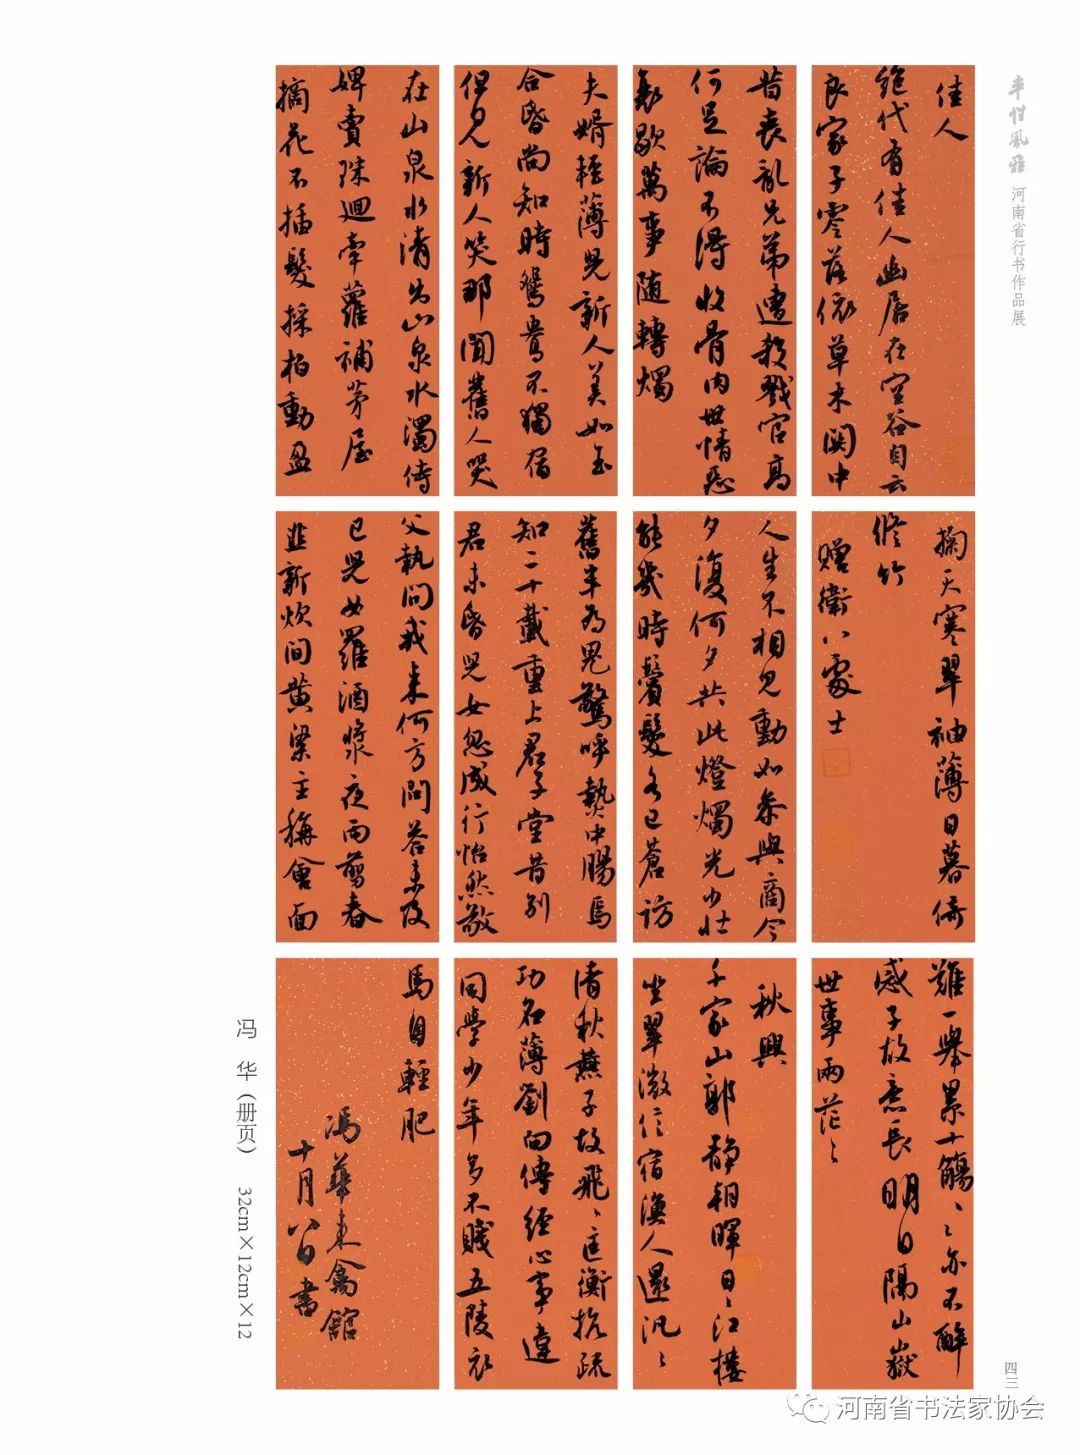 率性風雅 河南省行书作品展
佳人
絶代有佳人幽居在空谷自云
良家子零落依草木関中
昔喪乱兄弟遭殺戮官高
何足論不得收骨肉世情惡
衰歇萬事随轉燭
夫婿輕薄兒新人美如玉
合昏尚知時鴛鴦不獨宿
但見新人笑那聞舊人哭
在山泉水清出山泉水濁侍
婢賣珠迴牽蘿補茅屋
摘花不插髮採柏動盈
掬天寒翠袖薄日暮倚
修竹
贈衛八處士
人生不相見動如參與商今
夕復何夕共此燈燭光少壯
能幾時鬢髮各已蒼訪
舊半為鬼驚呼熱中腸焉
知二十載重上君子堂昔別
君未昏兒女忽成行怡然敬
父執問我来何方問答未及
已兒女羅酒漿夜雨剪春
韭新炊间黄粱主稱會面
難一舉累十觴〻〻亦不醉
感子故意長明日隔山嶽
世事兩茫〻
秋興
千家山郭静朝暉日〻江樓
坐翠微信宿漁人還汎〻
清秋燕子故飛〻匡衡抗疏
功名薄劉向傳經心事違
同學少年多不賤五陵衣
馬自輕肥
馮華来禽館
十月八日書
冯 华（册页） 32cm×12cm×12
四三
河南省书法家协会